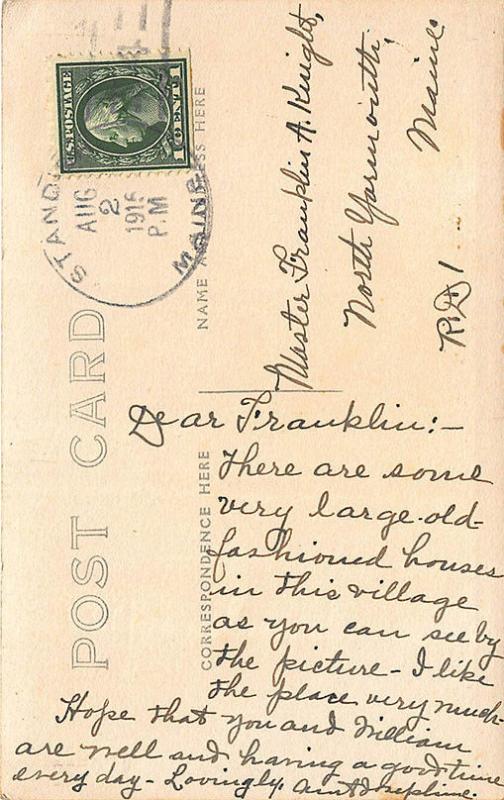 U.S. POSTAGE
1 CENT 1
AUG
2
1916
P.M
MAINE
POST CARD
NAME AND ADDRESS HERE
CORRESPONDENCE HERE
Master Franklin A. Knight,
North Yarmouth,
Maine
R.D 1
Dear Franklin:-
There are some
very large old-
fashioned houses
in this village
as you can see by
the picture - I like
the place very much-
Hope that you and William
are well and having a good time
every day - Lovingly, Aunt Josephine.